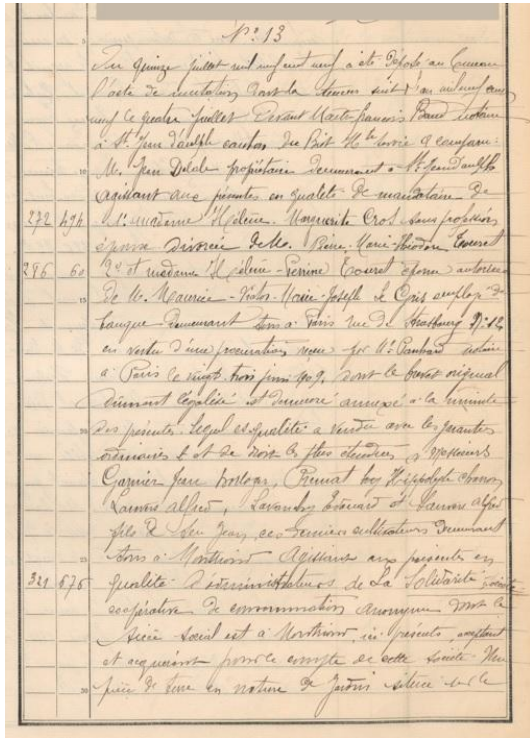 Nº 13
Du quinze juillet mil neuf cent neuf a été déposé au bureau
l'acte de mutation dont la teneur suit: l'an mil neuf cent
neuf le quatre juillet devant Maître François notaire
à St Jean d'aulph canton du Biot Hte Savoie a comparu:
M. Jean propriétaire demeurant à St Jean d'aulph
Agissant aux présentes en qualité de mandataire de
272 494 1º madame Hélène Marguerite Cros sans profession
épouse divorcée de M. Marie Théodore Touret
286 60 2º et madame Hélène Touret épouse autorisée
de M. Maurice-Victor-Marie-Joseph Le Gris employé de
banque demeurant tous à Paris rue de Strasbourg Nº 12
en vertu d'une procuration reçue par Me notaire
à Paris le vingt trois juin 1909, dont le brevet original
dûment légalisé est demeuré annexé à la minute
des présentes. Lequel es qualité a vendu avec les garanties
ordinaires et de droit les plus étendues à Messieurs
Garnier Jean, Premat Hippolyte
alfred, Edouard et alfred
fils de feu Jean, ces derniers cultivateurs demeurant
tous à Montriond Agissant aux présentes en
321 676 qualité d'administrateurs de La Solidarité société
coopérative de consommation anonyme dont le
siège social est à Montriond, ici présents, acceptant
et acquérant pour le compte de cette société. Une
pièce de terre en nature de jardin située sur le
5
10
15
20
25
30